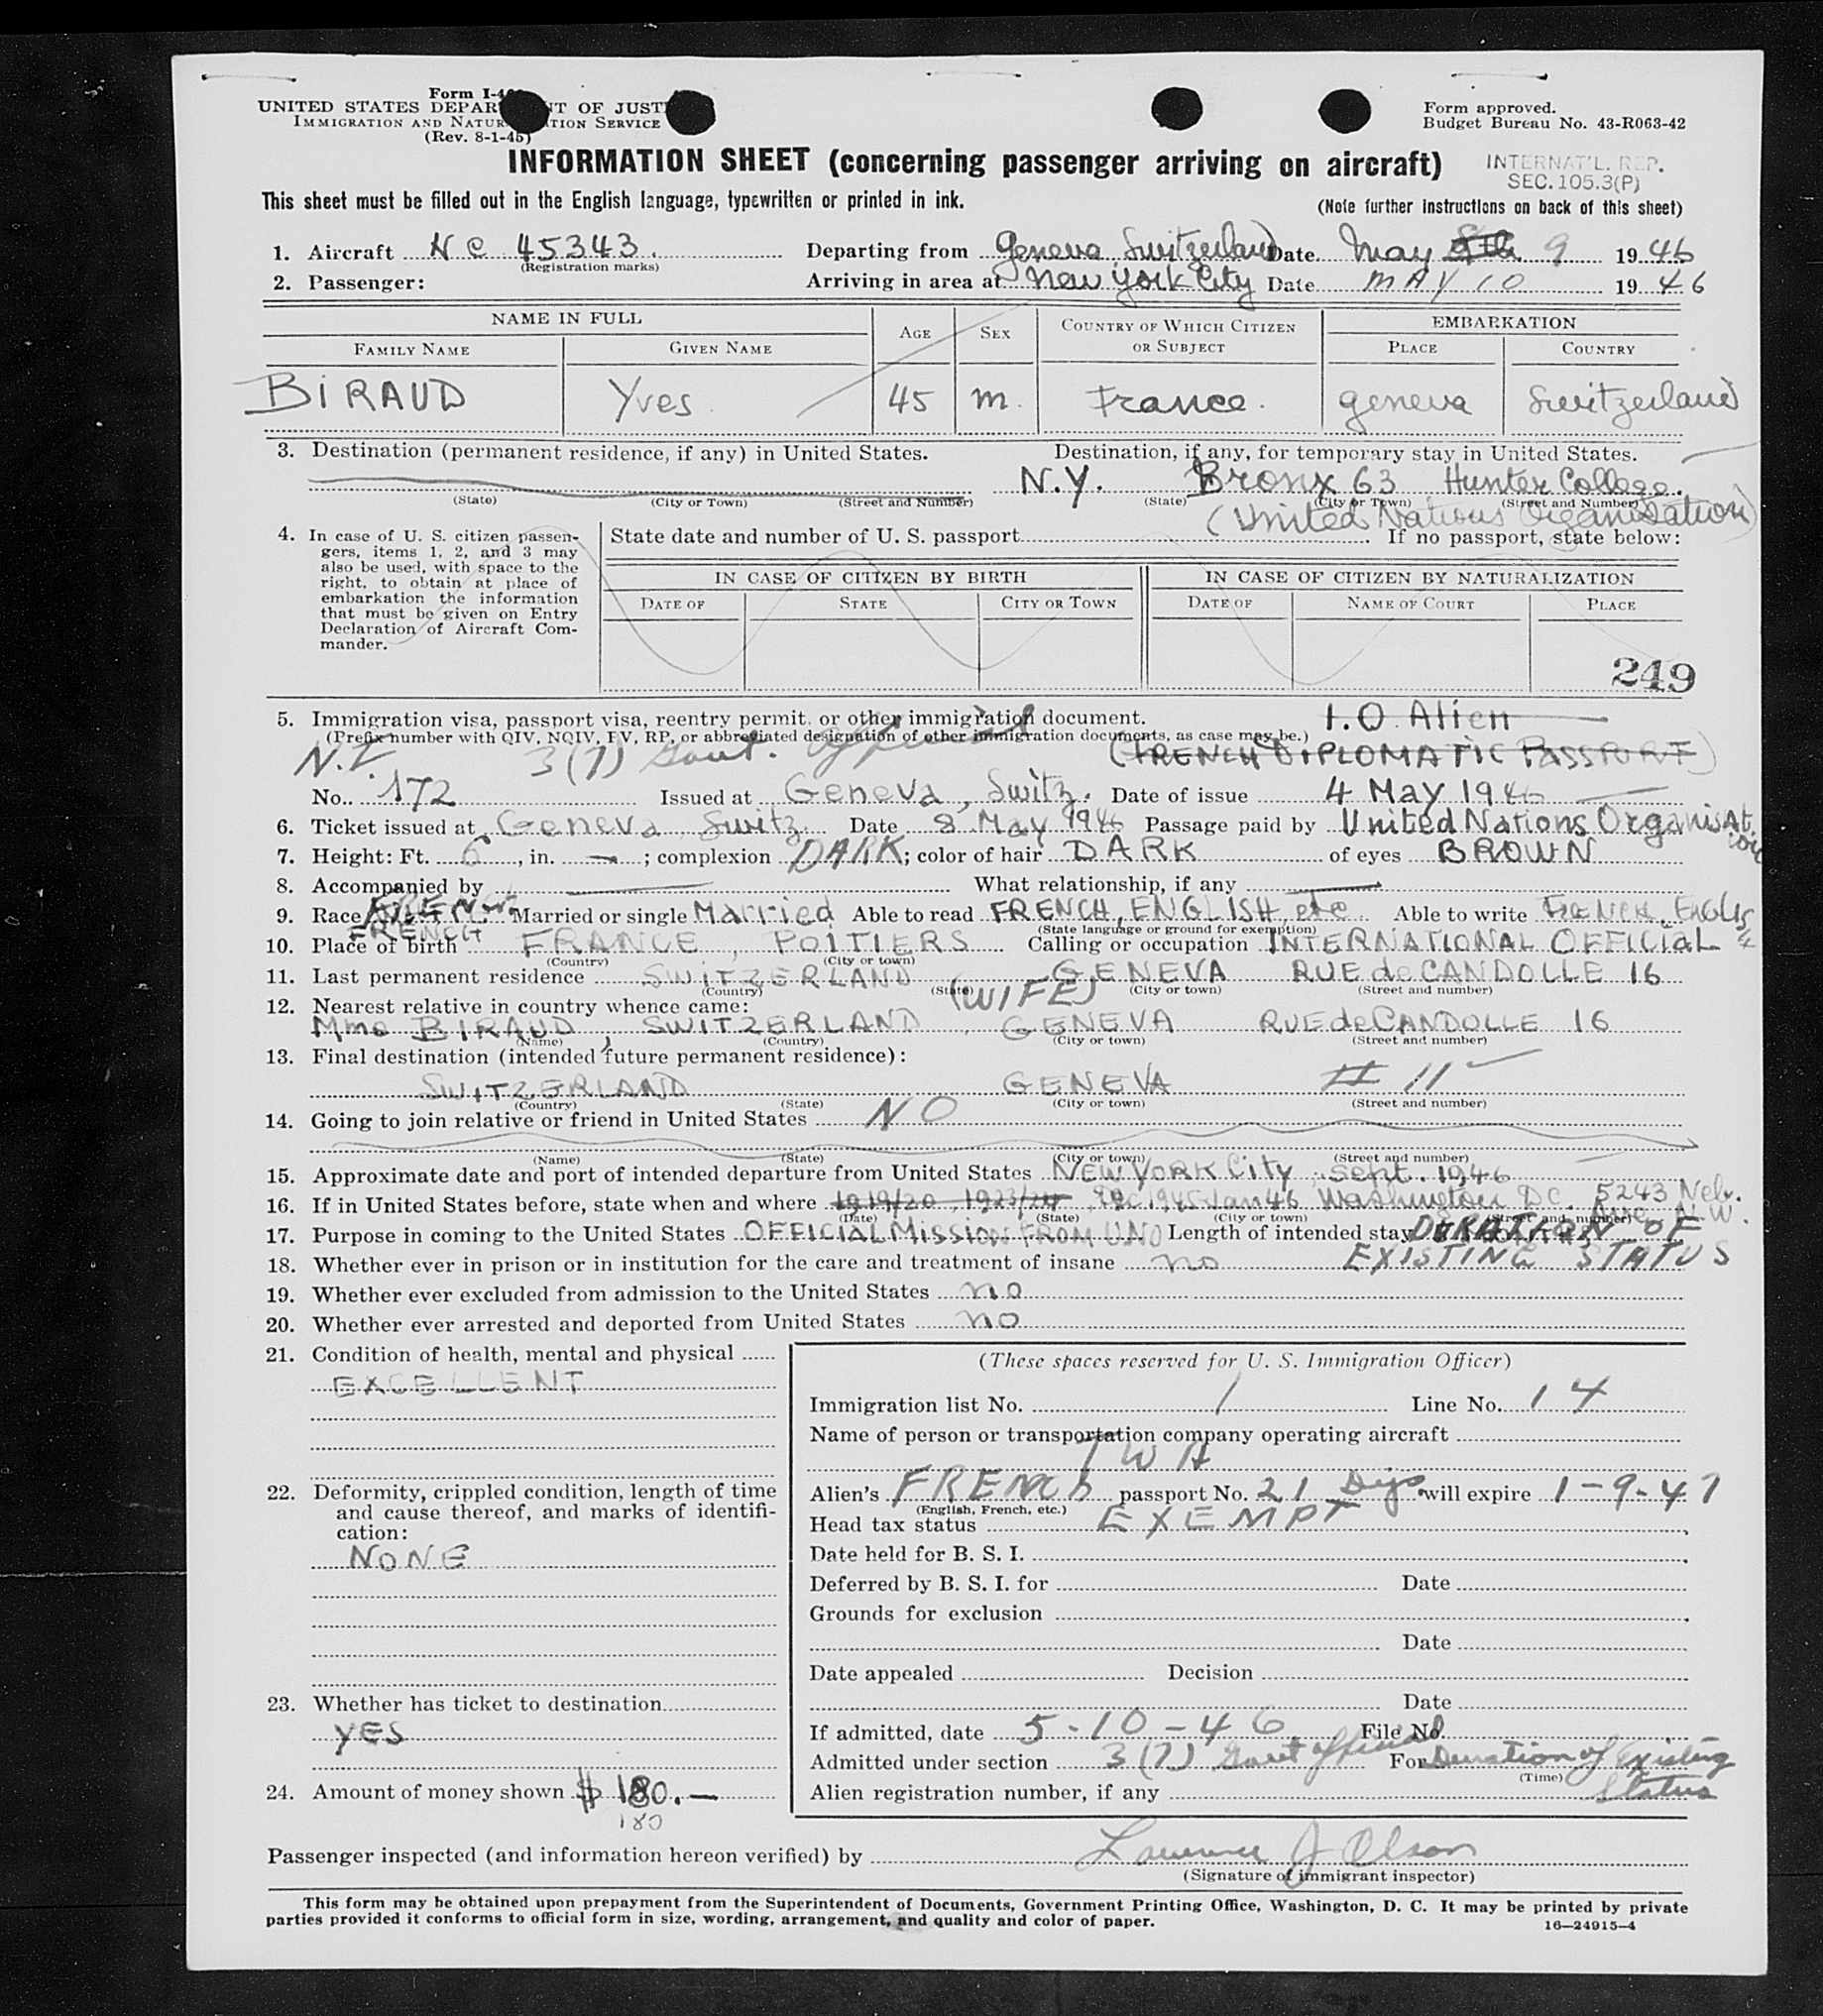 Form I-4
UNITED STATES DEPAR NT OF JUST
IMMIGRATION AND NATUR TION SERVICE
(Rev. 8-1-45)
Form approved.
Budget Bureau No. 43-R063-42
INFORMATION SHEET (concerning passenger arriving on aircraft)
INTERNAT'L. REP.
SEC. 105.3(P)
This sheet must be filled out in the English language, typewritten or printed in ink.
(Note further instructions on back of this sheet)
1. Aircraft NC 45343. Departing from Geneva, Switzerland Date May 9 1946
(Registration marks)
2. Passenger: Arriving in area at New York City Date MAY 10 1946
NAME IN FULL AGE SEX COUNTRY OF WHICH CITIZEN OR SUBJECT EMBARKATION
FAMILY NAME GIVEN NAME PLACE COUNTRY
BIRAUD Yves 45 m. France. Geneva Switzerland
3. Destination (permanent residence, if any) in United States. Destination, if any, for temporary stay in United States.
N.Y. Bronx 63 Hunter College.
(State) (City or Town) (Street and Number) (State) (City or Town) (Street and Number)
(United Nations Organisation)
4. In case of U. S. citizen passengers, items 1, 2, and 3 may also be used, with space to the right, to obtain at place of embarkation the information that must be given on Entry Declaration of Aircraft Commander.
State date and number of U. S. passport If no passport, state below:
IN CASE OF CITIZEN BY BIRTH IN CASE OF CITIZEN BY NATURALIZATION
DATE OF STATE CITY OR TOWN DATE OF NAME OF COURT PLACE
249
5. Immigration visa, passport visa, reentry permit, or other immigration document. I.O. Alien
(Prefix number with QIV, NQIV, PV, RP, or abbreviated designation of other immigration documents, as case may be.)
N.I. 3(7) Govt. official (FRENCH DIPLOMATIC PASSPORT)
No. 172 Issued at Geneva, Switz. Date of issue 4 May 1946
6. Ticket issued at Geneva Switz. Date 8 May 1946 Passage paid by United Nations Organisation
7. Height: Ft. 6, in. —; complexion DARK; color of hair DARK of eyes BROWN
8. Accompanied by — What relationship, if any —
9. Race FRENCH Married or single Married Able to read FRENCH, ENGLISH, etc Able to write French, English
FRENCH
(State language or ground for exemption)
10. Place of birth FRANCE, POITIERS Calling or occupation INTERNATIONAL OFFICIAL
(Country) (City or town)
11. Last permanent residence SWITZERLAND GENEVA RUE de CANDOLLE 16
(Country) (State) (City or town) (Street and number)
12. Nearest relative in country whence came: (WIFE)
Mme BIRAUD, SWITZERLAND, GENEVA RUE de CANDOLLE 16
(Name) (Country) (City or town) (Street and number)
13. Final destination (intended future permanent residence):
SWITZERLAND GENEVA " "
(Country) (State) (City or town) (Street and number)
14. Going to join relative or friend in United States NO
(Name) (State) (City or town) (Street and number)
15. Approximate date and port of intended departure from United States NEW YORK City, Sept. 1946
16. If in United States before, state when and where 1919/20, 1923/24, Dec. 1945 Jan 46 Washington DC. 5243 Neb. Ave. N.W.
(Date) (State) (City or town) (Street and number)
17. Purpose in coming to the United States OFFICIAL MISSION FROM UNO Length of intended stay DURATION OF
18. Whether ever in prison or in institution for the care and treatment of insane no EXISTING STATUS
19. Whether ever excluded from admission to the United States no
20. Whether ever arrested and deported from United States no
21. Condition of health, mental and physical
EXCELLENT
22. Deformity, crippled condition, length of time and cause thereof, and marks of identification:
NONE
23. Whether has ticket to destination
YES
24. Amount of money shown $ 180.—
180
(These spaces reserved for U. S. Immigration Officer)
Immigration list No. 1 Line No. 14
Name of person or transportation company operating aircraft
TWA
Alien's FRENCH passport No. 21 will expire 1-9-47
(English, French, etc.)
Head tax status EXEMPT
Date held for B. S. I.
Deferred by B. S. I. for Date
Grounds for exclusion
Date
Date appealed Decision
Date
If admitted, date 5-10-46 File No.
Admitted under section 3(7) Govt official For Duration of Existing Status
(Time)
Alien registration number, if any
Passenger inspected (and information hereon verified) by Lawrence J Olson
(Signature of immigrant inspector)
This form may be obtained upon prepayment from the Superintendent of Documents, Government Printing Office, Washington, D. C. It may be printed by private
parties provided it conforms to official form in size, wording, arrangement, and quality and color of paper.
16—24915-4